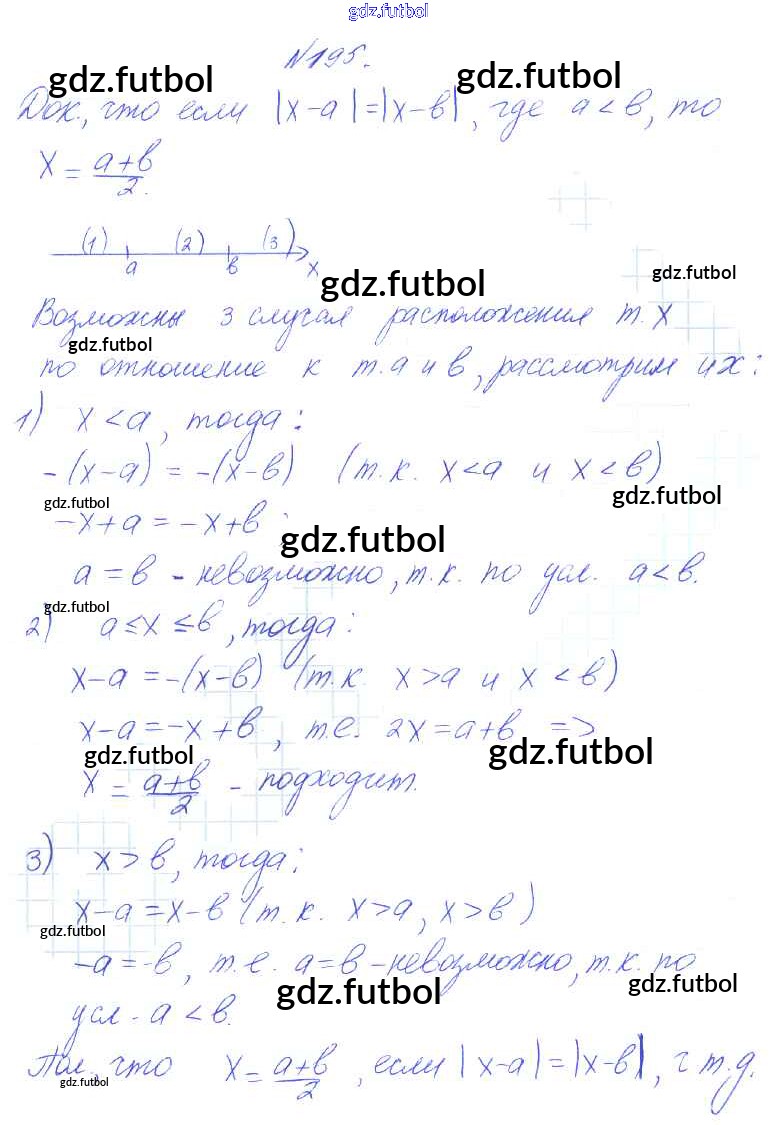 gdz.futbol
№195.
gdz.futbol gdz.futbol
Док., что если |x-a|=|x-в|, где a<в, то
x = a+в/2.
(1) (2) (3)
a в x
gdz.futbol gdz.futbol
Возможны 3 случая расположения т. x
gdz.futbol
по отношение к т. a и в, рассмотрим их:
1) x<a, тогда:
-(x-a) = -(x-в) (т.к. x<a и x<в)
gdz.futbol gdz.futbol
-x+a = -x+в;
gdz.futbol
a=в - невозможно, т.к. по усл. a<в.
gdz.futbol
2) a≤x≤в, тогда:
x-a = -(x-в) (т.к. x>a и x<в)
x-a = -x+в, т.е. 2x=a+в =>
gdz.futbol gdz.futbol
x = a+в/2 - подходит.
3) x>в, тогда:
x-a = x-в (т.к. x>a, x>в)
gdz.futbol
-a=-в, т.е. a=в - невозможно, т.к. по
gdz.futbol gdz.futbol
усл - a<в.
Пол., что x = a+в/2, если |x-a|=|x-в|, ч.т.д.
gdz.futbol